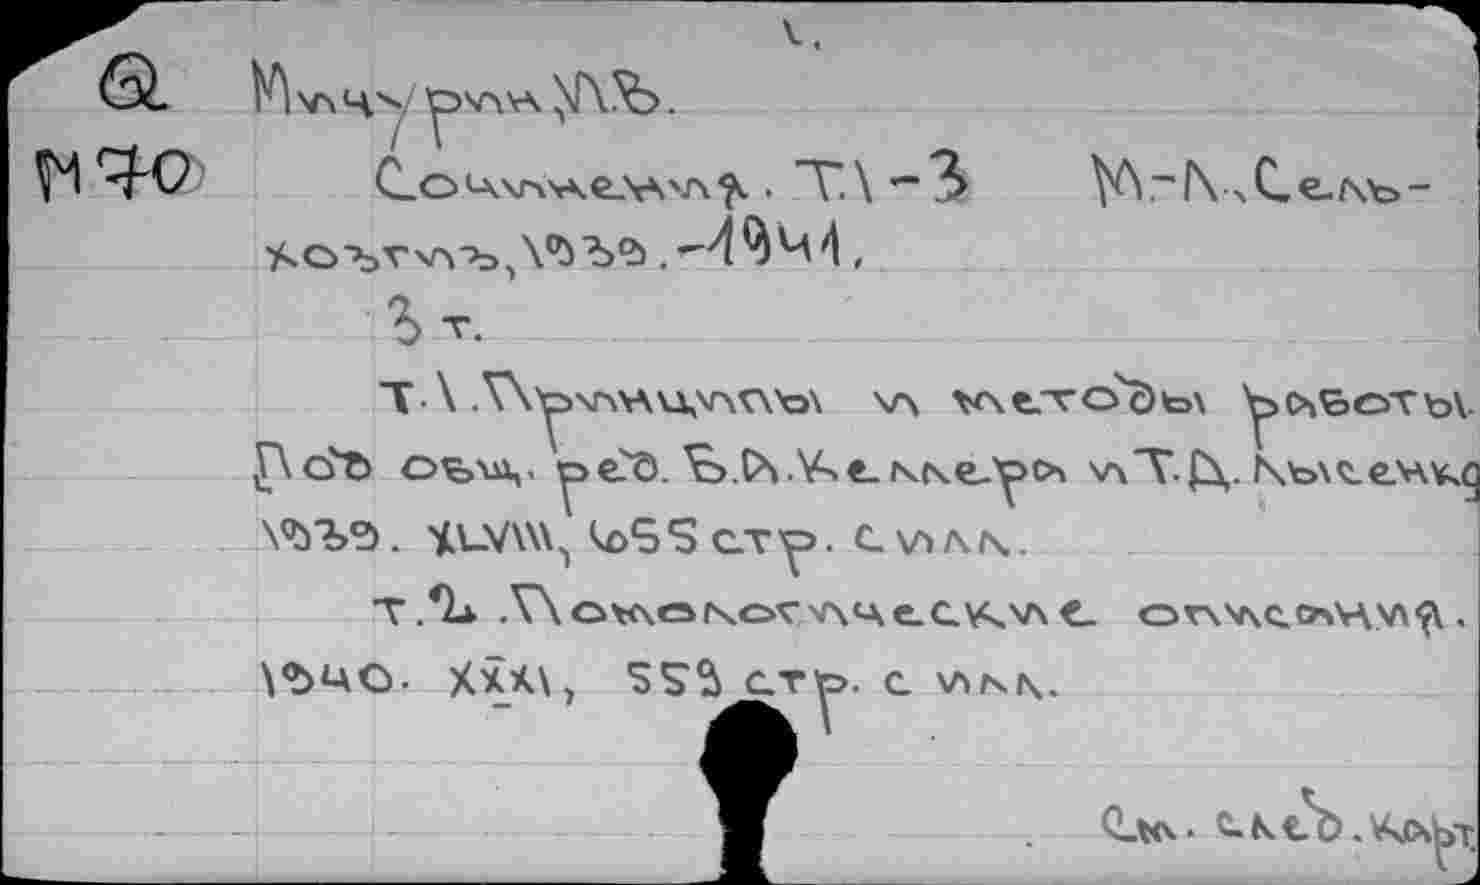 1.
Ф Мичурин, И.В.
М 70 Сочинения. Т.1-3 М.-Л., Сель-
хозгиз, 1939.-1941.
3 т.
Т.1. Принципы и методы работы.
Под общ. ред. Б.А. Келлера и Т.Д. Лысенко
1939. XLVIII, 655 стр. с илл.
т.2. Помологические описания.
1940. XIXI, 553 стр. с илл.
См. след. карт.